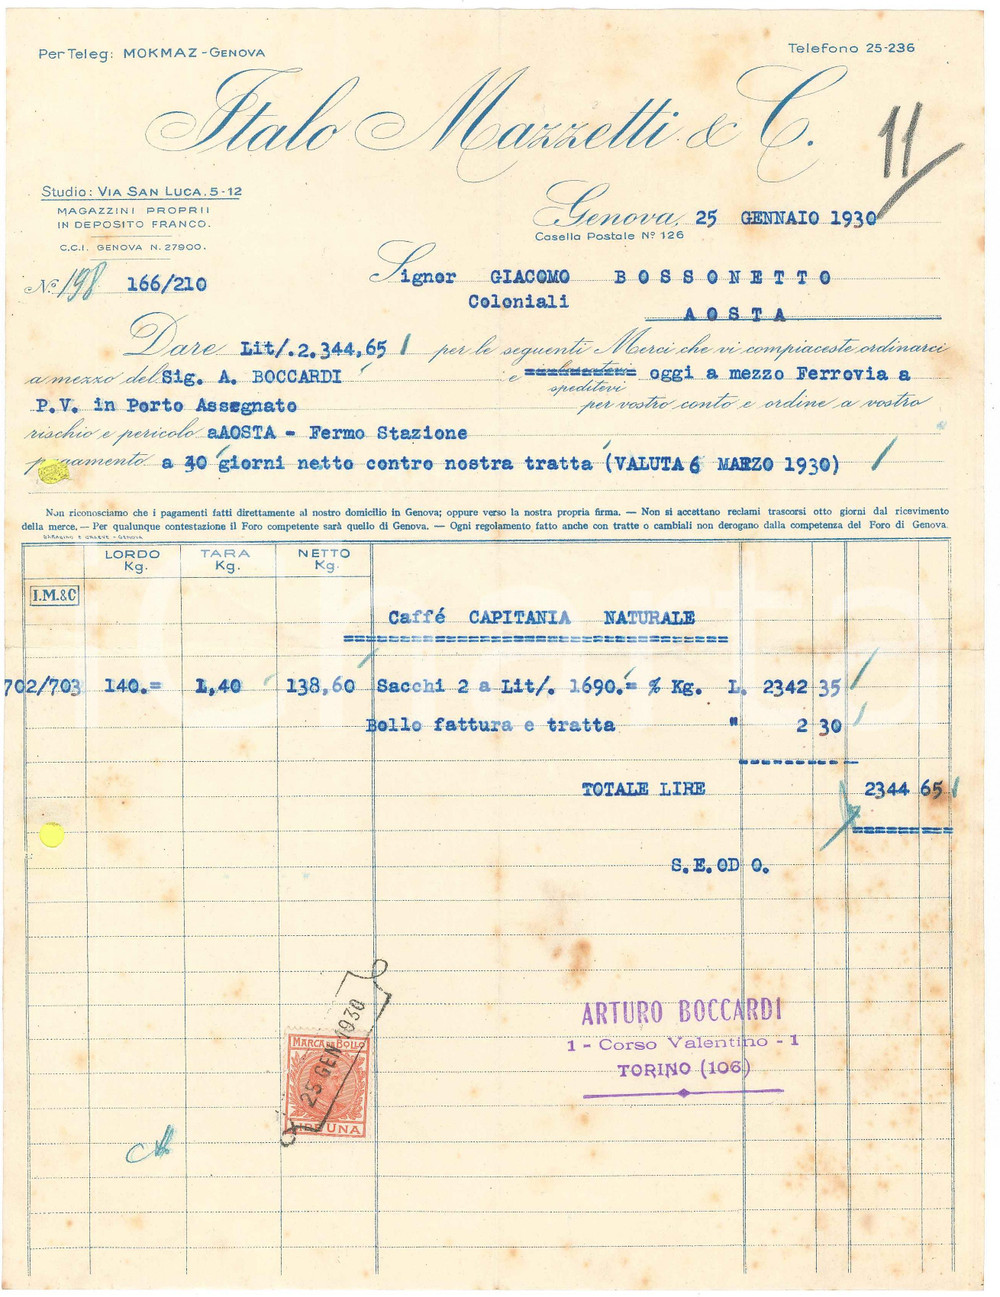 Per Teleg: MOKMAZ - GENOVA
Telefono 25-236
Italo Mazzetti & C.
11
Studio: VIA SAN LUCA. 5-12
MAGAZZINI PROPRII
IN DEPOSITO FRANCO.
C.C.I. GENOVA N. 27900.
Genova, 25 GENNAIO 1930
Casella Postale Nº 126
Nº 198 166/210
Signor GIACOMO BOSSONETTO
Coloniali
AOSTA
Dare Lit/.2.344,65 per le seguenti Merci che vi compiaceste ordinarci
a mezzo del Sig. A. BOCCARDI e oggi a mezzo Ferrovia a
speditevi
P.V. in Porto Assegnato per vostro conto e ordine a vostro
rischio e pericolo a AOSTA - Fermo Stazione
pagamento a 40 giorni netto contro nostra tratta (VALUTA 6 MARZO 1930)
Non riconosciamo che i pagamenti fatti direttamente al nostro domicilio in Genova; oppure verso la nostra propria firma. — Non si accettano reclami trascorsi otto giorni dal ricevimento
della merce. — Per qualunque contestazione il Foro competente sarà quello di Genova. — Ogni regolamento fatto anche con tratte o cambiali non derogano dalla competenza del Foro di Genova.
LORDO Kg. TARA Kg. NETTO Kg.
I.M.&C
Caffé CAPITANIA NATURALE
702/703 140.= 1,40 138,60 Sacchi 2 a Lit/. 1690.= % Kg. L. 2342 35
Bollo fattura e tratta " 2 30
TOTALE LIRE 2344 65
S.E.OD O.
ARTURO BOCCARDI
1 - Corso Valentino - 1
TORINO (106)
MARCA DA BOLLO
25 GEN 1930
LIRE UNA